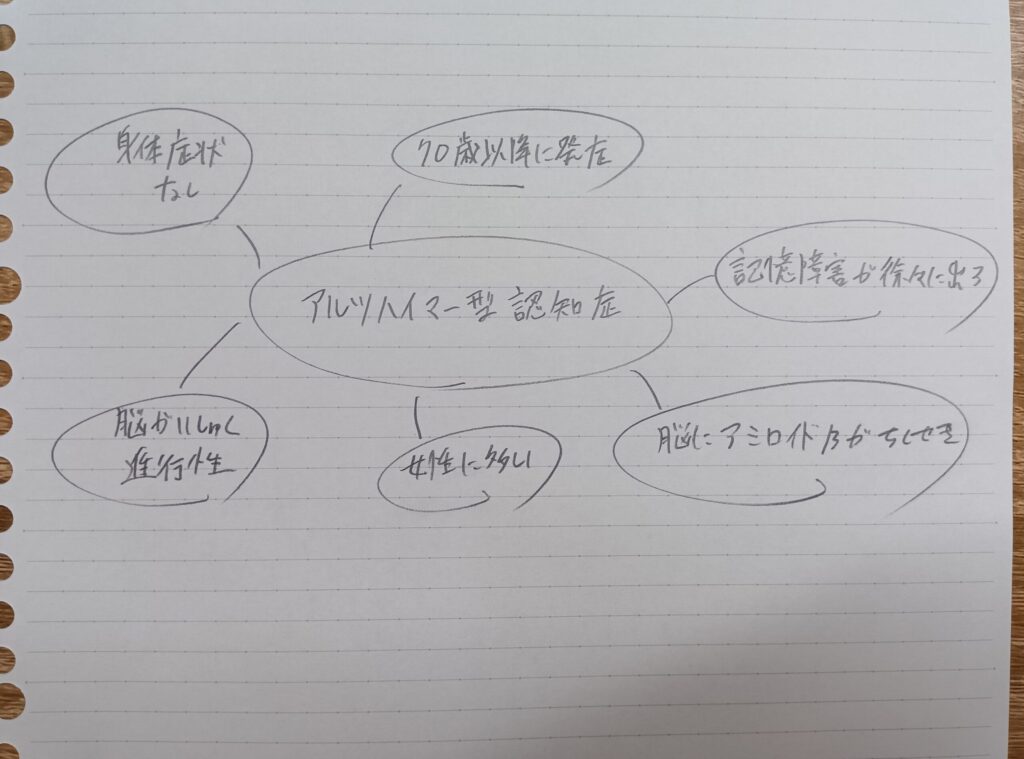 身体症状
なし
70歳以降に発症
アルツハイマー型 認知症
記憶障害が徐々に出る
脳がいしゅく
進行性
女性に多い
脳にアミロイドβがちくせき